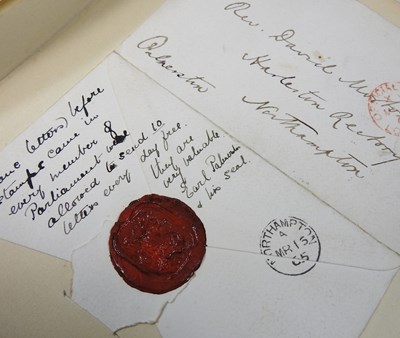 Rev. David
Harleston Rectory
Northampton
Palmerston
(letters) before
stamps came in
every member of
Parliament was
allowed to send 10
letters every day free.
they are
very valuable
Earl Palmerston
& his seal.
NORTHAMPTON
A
MR 15
65